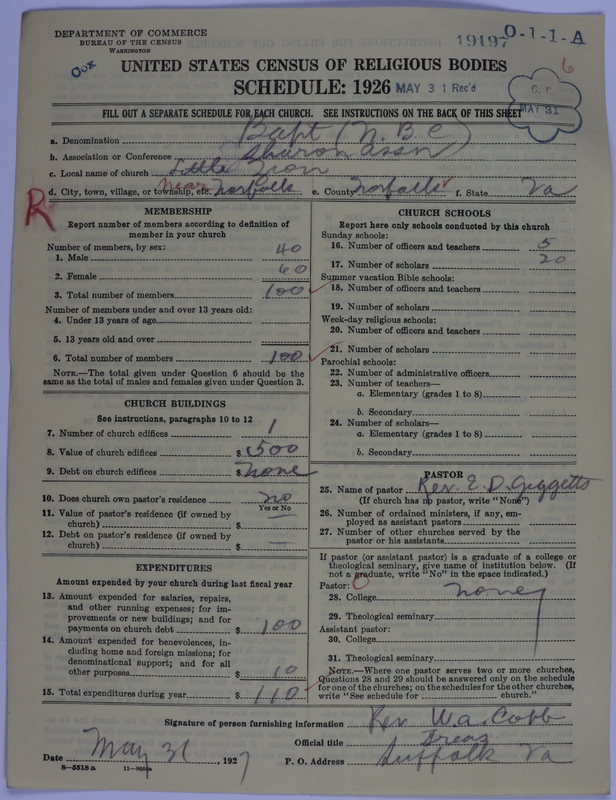 DEPARTMENT OF COMMERCE
BUREAU OF THE CENSUS
WASHINGTON
19197 0-1-1-A
Cox
6
UNITED STATES CENSUS OF RELIGIOUS BODIES
SCHEDULE: 1926 MAY 31 Rec'd
C. C.
MAY 31
FILL OUT A SEPARATE SCHEDULE FOR EACH CHURCH. SEE INSTRUCTIONS ON THE BACK OF THIS SHEET
a. Denomination Bapt (N.B.C)
b. Association or Conference Sharon assn
c. Local name of church Little Zion
d. City, town, village, or township, etc. near Norfolk e. County Norfolk f. State Va
R
MEMBERSHIP
Report number of members according to definition of member in your church
Number of members, by sex:
1. Male 40
2. Female 60
3. Total number of members 100
Number of members under and over 13 years old:
4. Under 13 years of age
5. 13 years old and over
6. Total number of members 100
NOTE.—The total given under Question 6 should be the same as the total of males and females given under Question 3.
CHURCH BUILDINGS
See instructions, paragraphs 10 to 12
7. Number of church edifices 1
8. Value of church edifices $ 500
9. Debt on church edifices $ none
10. Does church own pastor's residence no
Yes or No
11. Value of pastor's residence (if owned by church) $
12. Debt on pastor's residence (if owned by church) $
EXPENDITURES
Amount expended by church during last fiscal year
13. Amount expended for salaries, repairs, and other running expenses; for improvements or new buildings; and for payments on church debt $ 100
14. Amount expended for benevolences, including home and foreign missions; for denominational support; and for all other purposes $ 10
15. Total expenditures during year $ 110
CHURCH SCHOOLS
Report here only schools conducted by this church
Sunday schools:
16. Number of officers and teachers 5
17. Number of scholars 20
Summer vacation Bible schools:
18. Number of officers and teachers
19. Number of scholars
Week-day religious schools:
20. Number of officers and teachers
21. Number of scholars
Parochial schools:
22. Number of administrative officers
23. Number of teachers—
a. Elementary (grades 1 to 8)
b. Secondary
24. Number of scholars—
a. Elementary (grades 1 to 8)
b. Secondary
PASTOR
25. Name of pastor Rev. E. D. Giggetts
(If church has no pastor, write "None")
26. Number of ordained ministers, if any, employed as assistant pastors
27. Number of other churches served by the pastor or his assistants
If pastor (or assistant pastor) is a graduate of a college or theological seminary, give name of institution below. (If not a graduate, write "No" in the space indicated.)
Pastor: O
28. College none
29. Theological seminary
Assistant pastor:
30. College
31. Theological seminary
NOTE.—Where one pastor serves two or more churches, Questions 28 and 29 should be answered only on the schedule for one of the churches; on the schedules for the other churches, write "See schedule for church."
Signature of person furnishing information Rev. W.A. Cobb
Official title Treas
Date May 31, 1927 P. O. Address Suffolk Va
8-5518 a